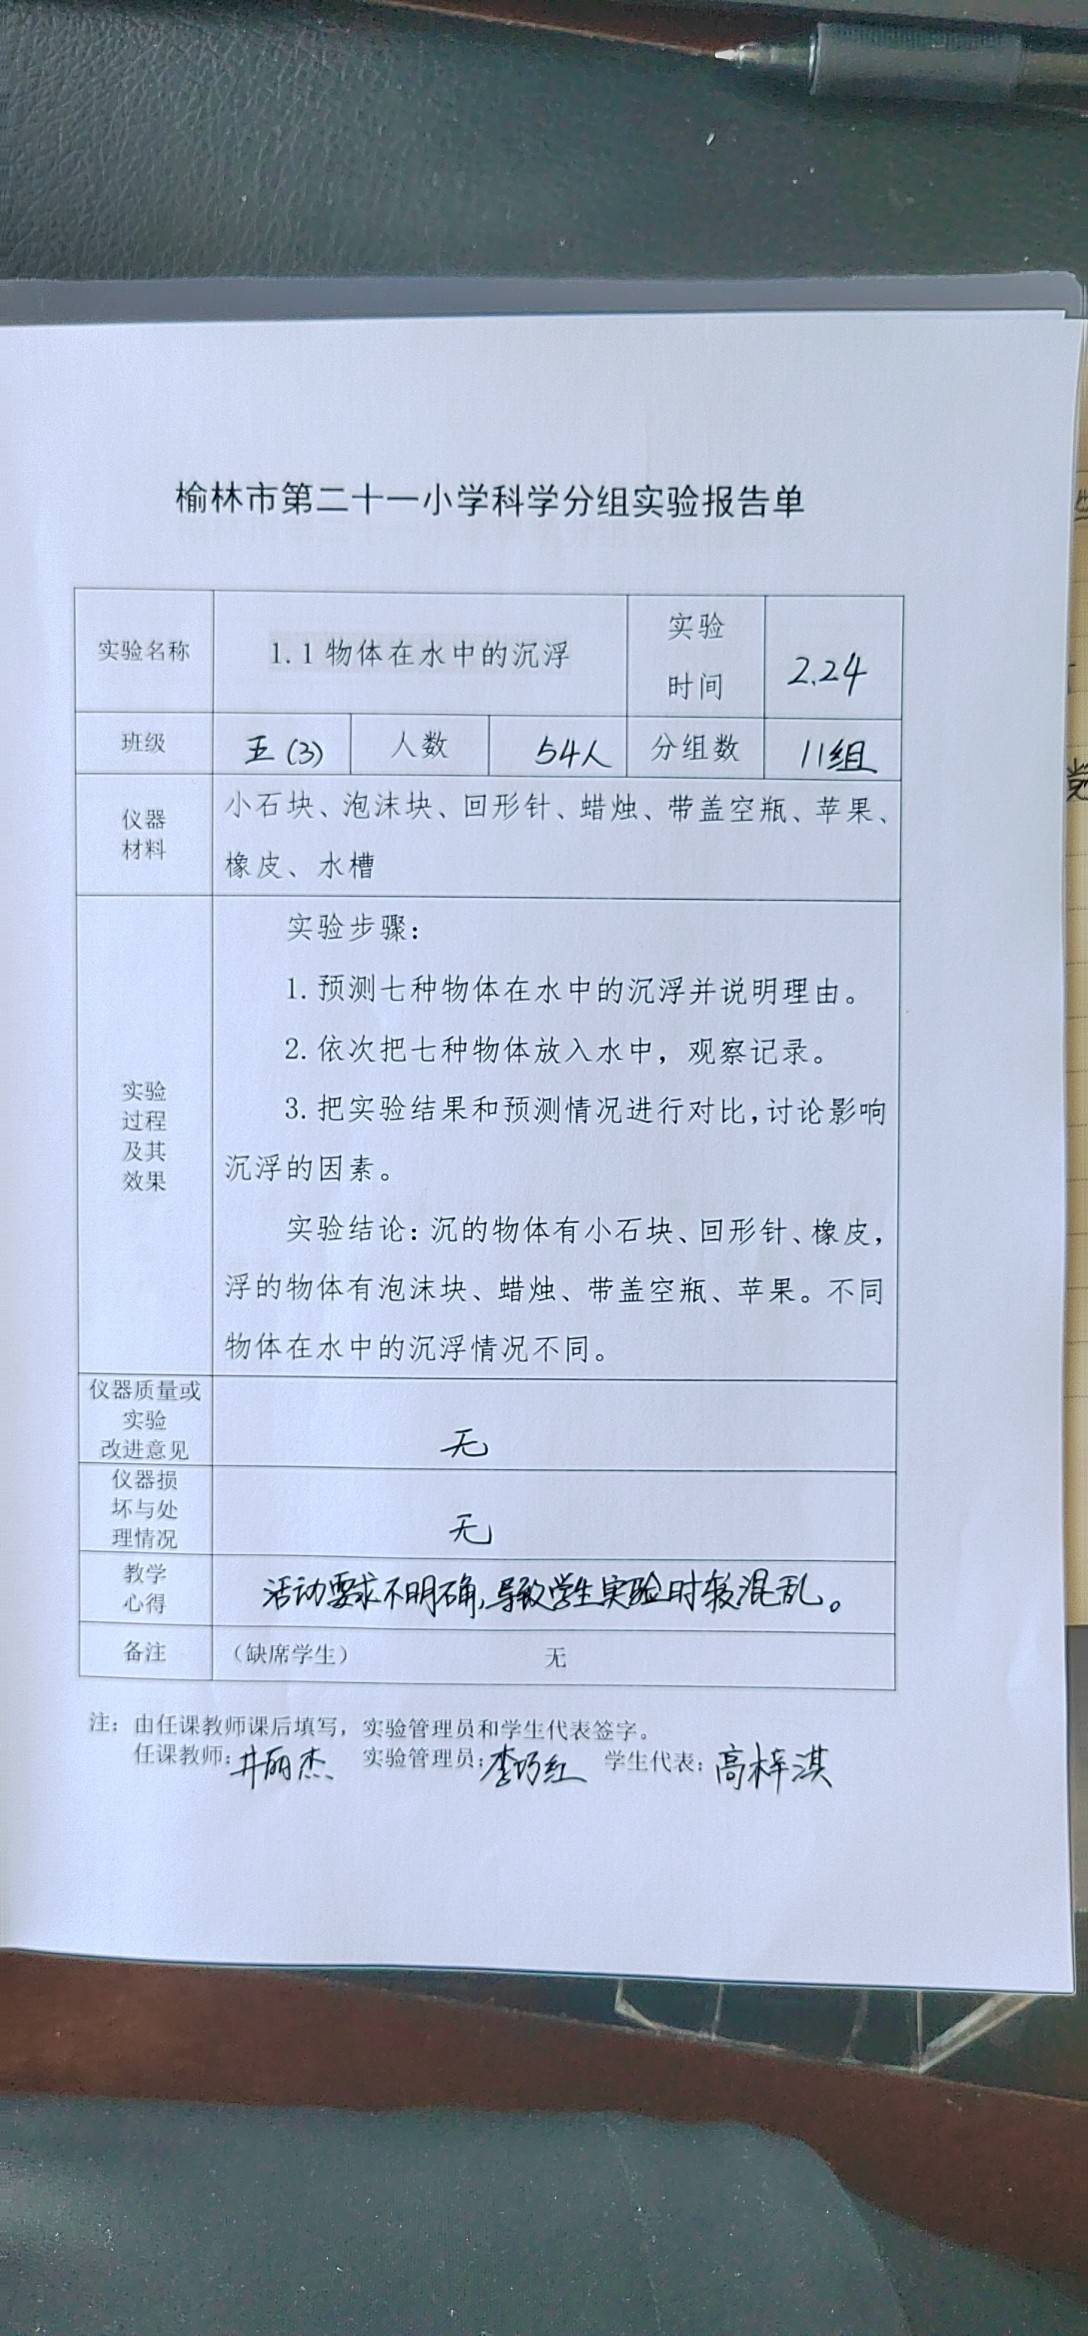 榆林市第二十一小学科学分组实验报告单
实验名称 1.1物体在水中的沉浮 实验时间 2.24
班级 五(3) 人数 54人 分组数 11组
仪器材料
小石块、泡沫块、回形针、蜡烛、带盖空瓶、苹果、
橡皮、水槽
实验过程及其效果
实验步骤：
1.预测七种物体在水中的沉浮并说明理由。
2.依次把七种物体放入水中，观察记录。
3.把实验结果和预测情况进行对比，讨论影响
沉浮的因素。
实验结论：沉的物体有小石块、回形针、橡皮，
浮的物体有泡沫块、蜡烛、带盖空瓶、苹果。不同
物体在水中的沉浮情况不同。
仪器质量或实验改进意见 无
仪器损坏与处理情况 无
教学心得 活动要求不明确，导致学生实验时较混乱。
备注 （缺席学生） 无
注：由任课教师课后填写，实验管理员和学生代表签字。
任课教师：井丽杰 实验管理员：李巧红 学生代表：高梓淇